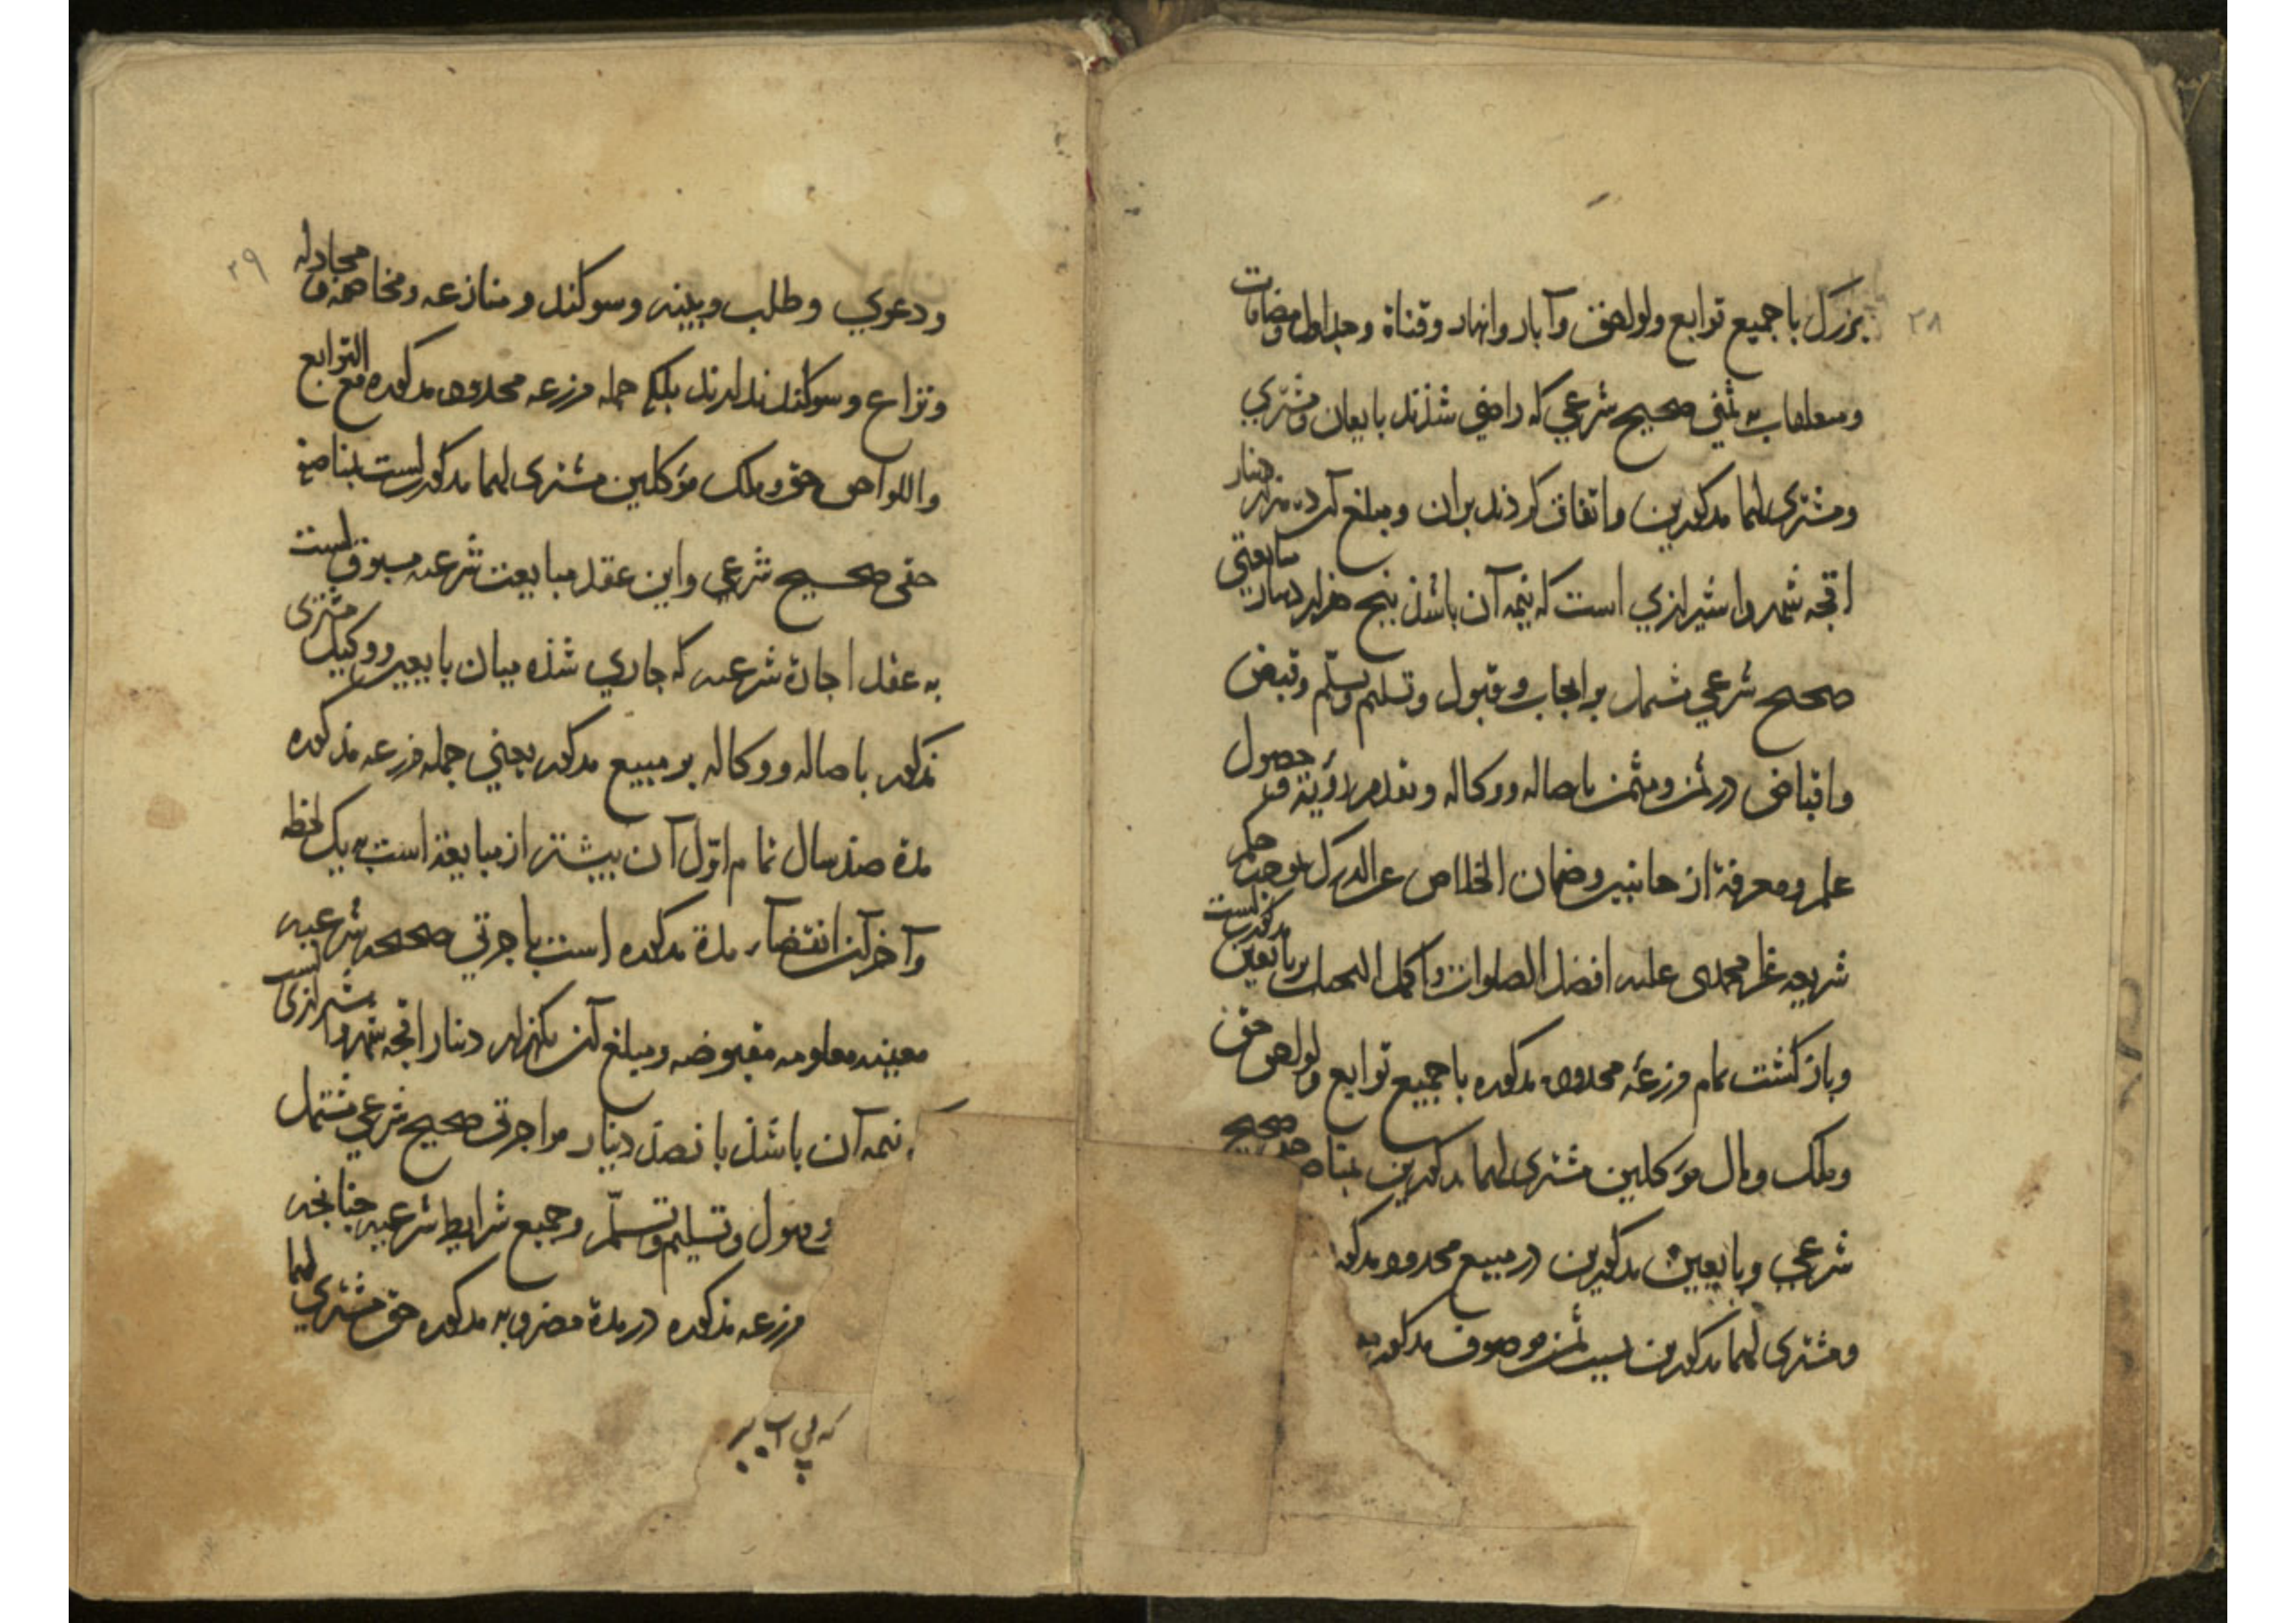 ۳۸
بزرگ با جمیع توابع ولواحق وآبار وانهار وقناة و ومضافات
و ثمنی صحیح شرعی که راضی شدند بایعان ومشتری
ومشتری لهما مذکورین واتفاق کردند بران ومبلغ آن ده هزار دینار
اقچه شهروا شیرازی است که نیمه آن باشد پنج هزار دینار مبایعتی
صحیح شرعی مشتمل بر ایجاب وقبول وتسلیم وتسلم وقبض
واقباض در ثمن ومثمن باصاله ووکاله وتقدم رؤیة وحصول
علم ومعرفة از جانبین وضمان الخلاص عن الدرک بموجب حکم
شریعه غراء محمدی علیه افضل الصلوات واکمل التحیات بر بایعین مذکورست
وبازگشت تمام مزرعه محدوده مذکوره با جمیع توابع ولواحق حق
وملک ومال موکلین مشتری لهما مذکورین صحیح
شرعی وبایعین مذکورین در مبیع محدود مذکور
ومشتری لهما مذکورین بسبب ثمن موصوف مذکور
۳۹
ودعوی وطلب وبینه وسوکند ومنازعه ومخاصمه ومجادله
ونزاع وسوکند ندارند بلکه جمله مزرعه محدوده مذکوره مع التوابع
واللواحق حق وملک موکلین مشتری لهما مذکورست
حقی صحیح شرعی واین عقد مبایعت شرعیه مسبوق است
به عقد اجارة شرعیه که جاری شده میان بایعین ووکیل مشتری
مذکور باصاله ووکاله بر مبیع مذکور یعنی جمله مزرعه مذکوره
مدة صد سال تمام اول آن بیشتر از مبایعة است به یک لحظه
وآخر آن انقضاء مدة مذکوره است باجرتی صحیحه شرعیه
معینه معلومه مقبوضه ومبلغ آن یکهزار دینار اقچه شهروا شیرازی است
نیمه آن باشد پانصد دینار مواجرتی صحیح شرعی مشتمل
وقبول وتسلیم وتسلم وجمیع شرایط شرعیه چنانچه
مزرعه مذکوره در مدة مضروبه مذکوره حق مشتری لهما